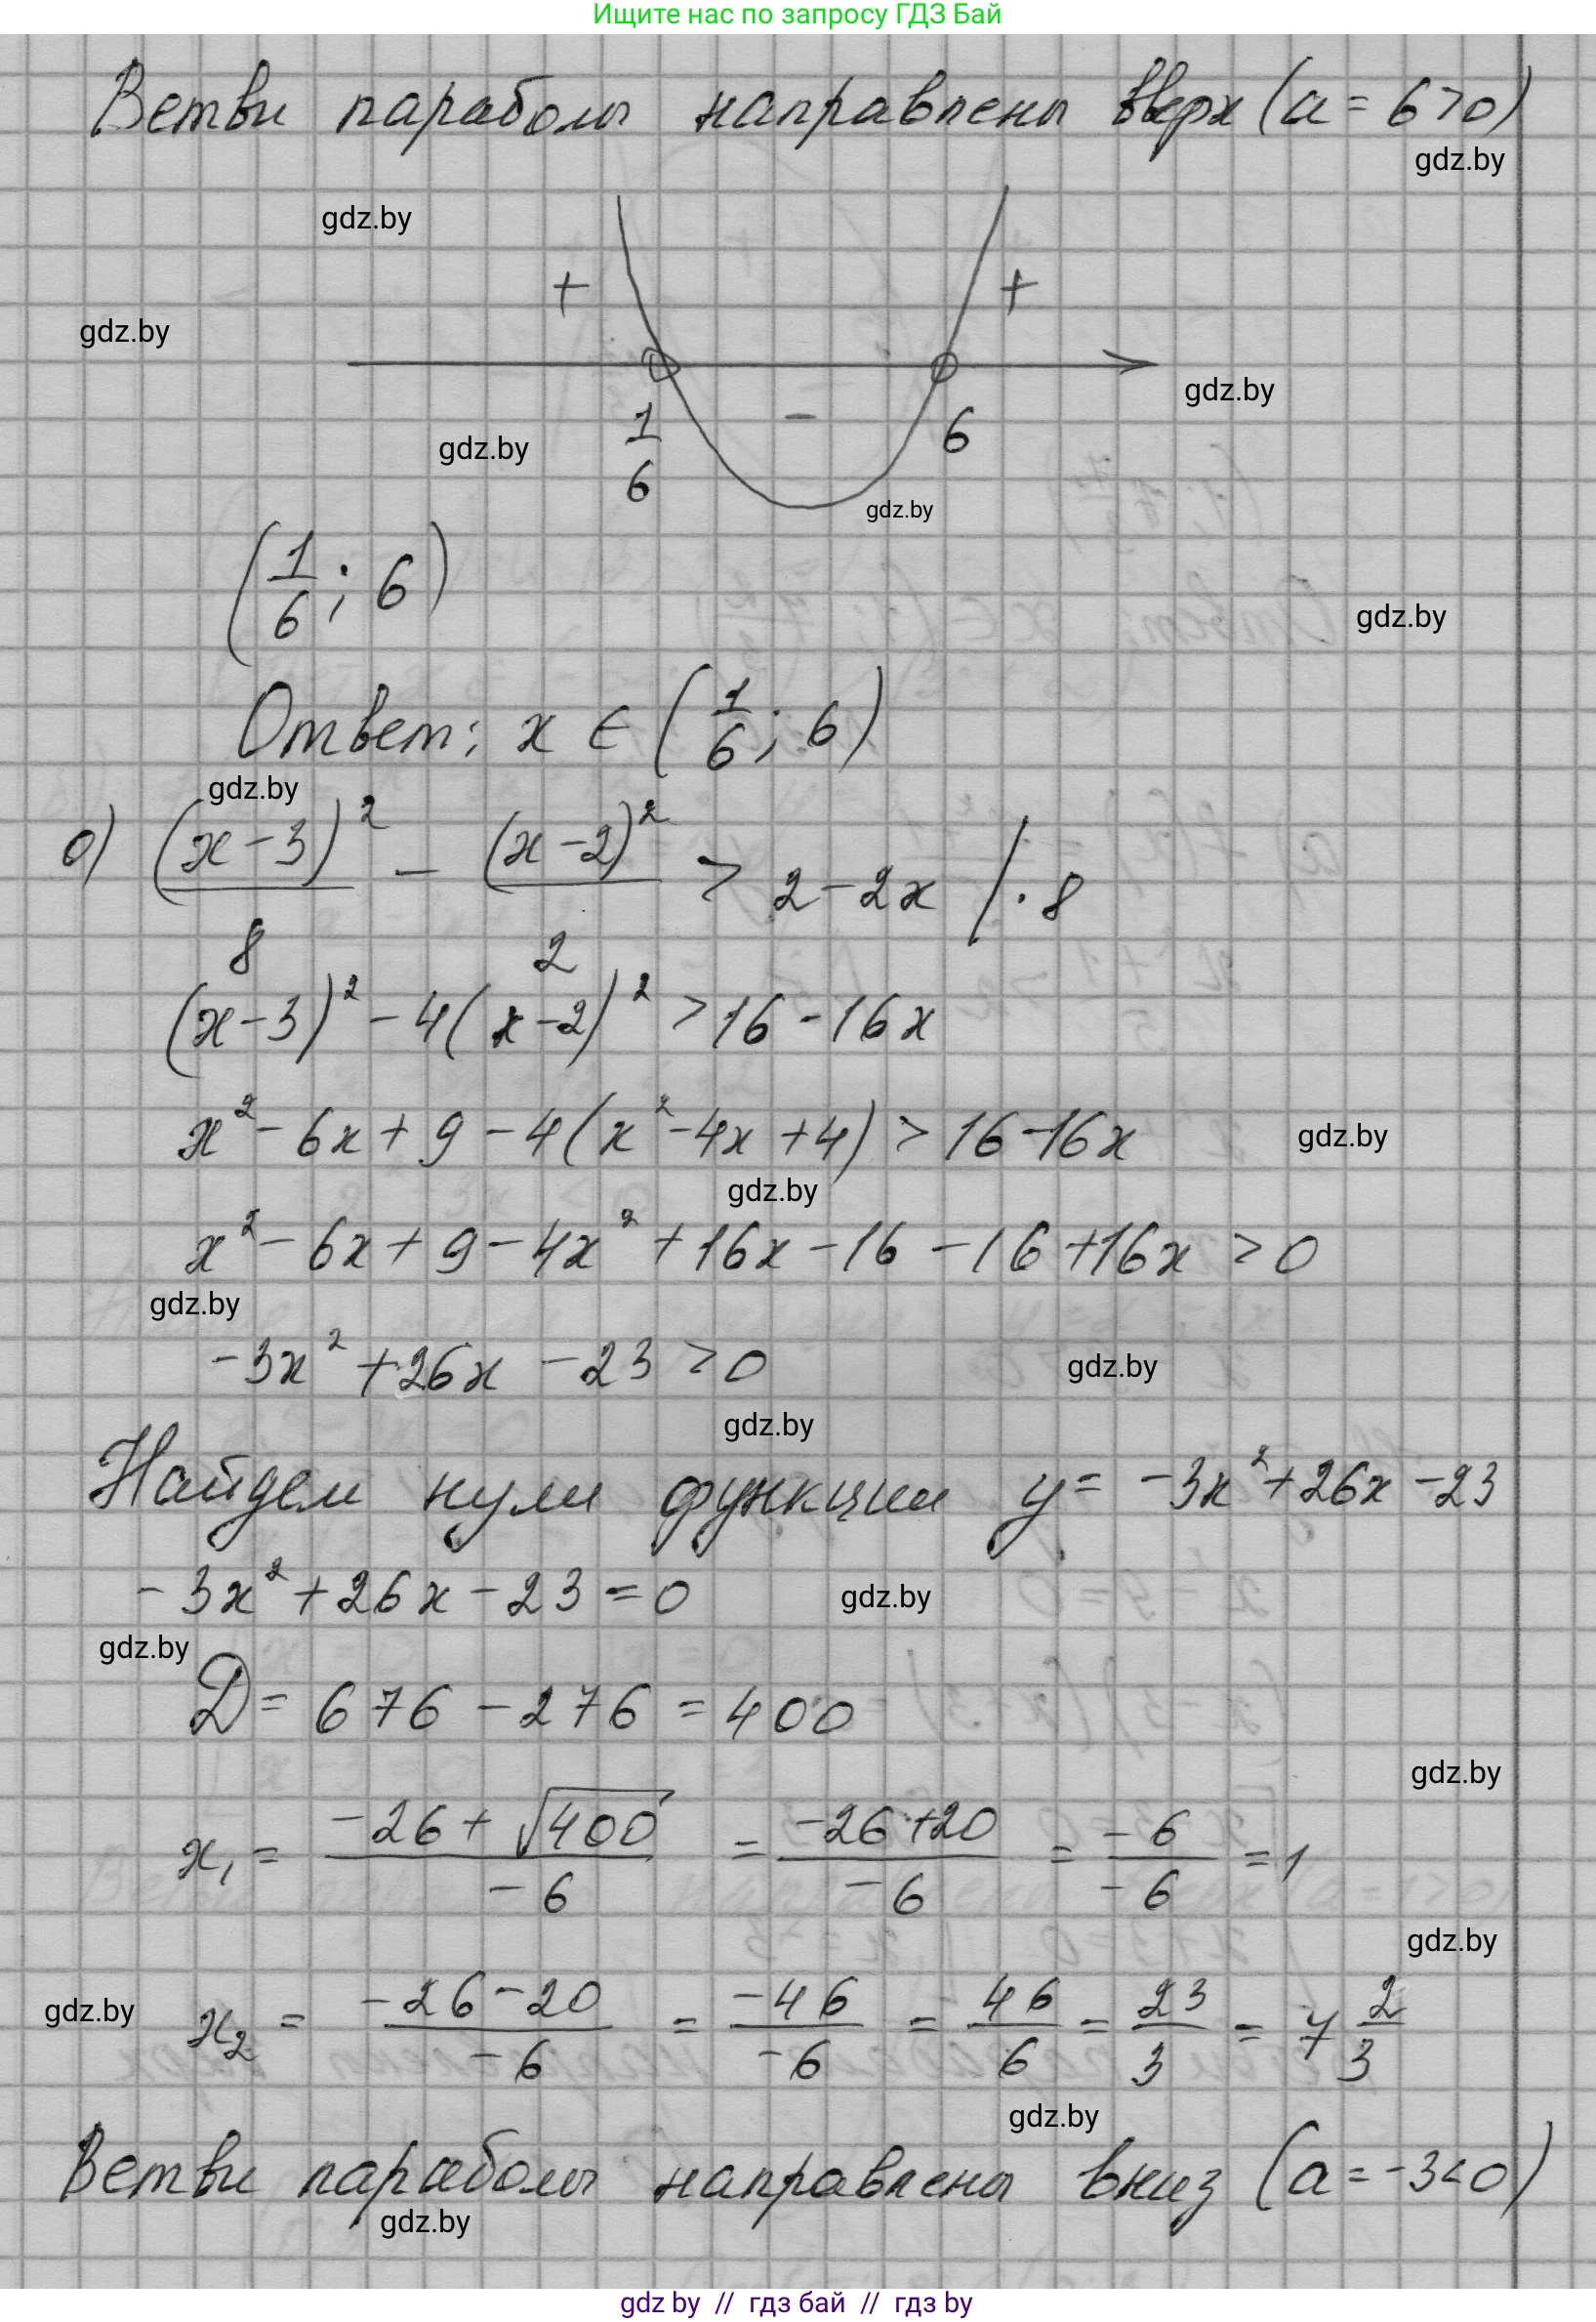 Ищите нас по запросу ГДЗ Бай
Ветви параболы направлены вверх (a = 6 > 0)
gdz.by
gdz.by
+ +
gdz.by
gdz.by
1/6 - 6
gdz.by
gdz.by
(1/6; 6)
gdz.by
Ответ: x ∈ (1/6; 6)
gdz.by
о) (x-3)²/8 - (x-2)²/2 > 2-2x | · 8
(x-3)² - 4(x-2)² > 16 - 16x
x² - 6x + 9 - 4(x² - 4x + 4) > 16 - 16x
gdz.by
gdz.by
x² - 6x + 9 - 4x² + 16x - 16 - 16 + 16x > 0
gdz.by
-3x² + 26x - 23 > 0
gdz.by
gdz.by
Найдем нули функции y = -3x² + 26x - 23
-3x² + 26x - 23 = 0
gdz.by
gdz.by
D = 676 - 276 = 400
gdz.by
x₁ = (-26 + √400)/(-6) = (-26 + 20)/(-6) = (-6)/(-6) = 1
gdz.by
gdz.by
x₂ = (-26 - 20)/(-6) = (-46)/(-6) = 46/6 = 23/3 = 7 2/3
gdz.by
Ветви параболы направлены вниз (a = -3 < 0)
gdz.by
gdz by // гдз бай // гдз by